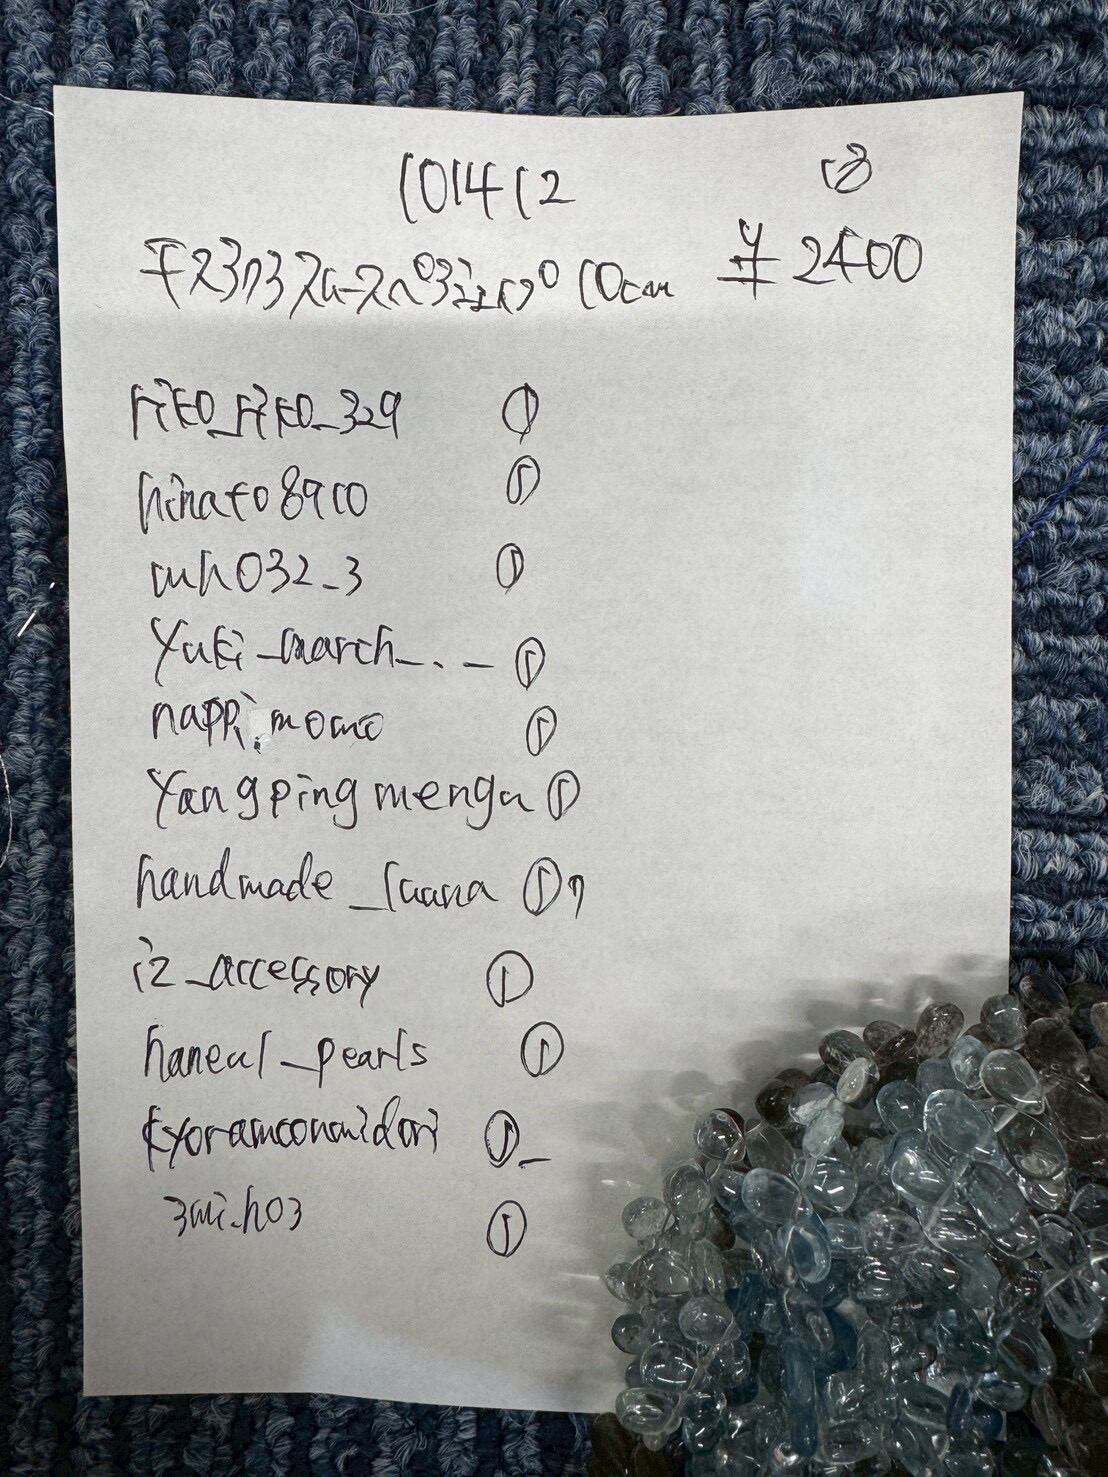 101412 18
10cm ¥2400
riko_riko_329 ①
hinato8910 ①
mh032_3 ①
yuki_march_._ ①
nappi.momo ①
Yangpingmengu ①
handmade_luana ①
iz_accessory ①
haneul_pearls ①
kyoramconomidori ①
3mi.h03 ①